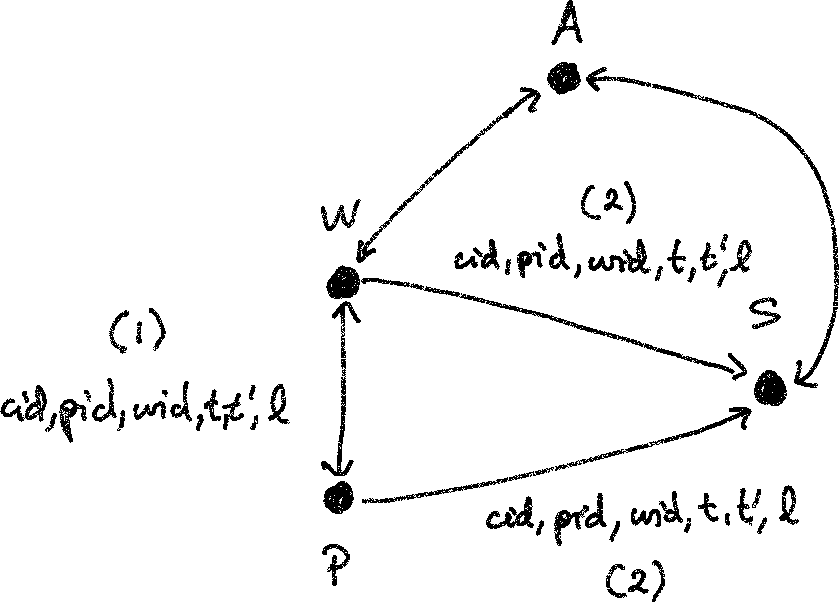 A
W
(2)
cid, pid, wid, t, t', l
S
(1)
cid, pid, wid, t, t', l
cid, pid, wid, t, t', l
P
(2)